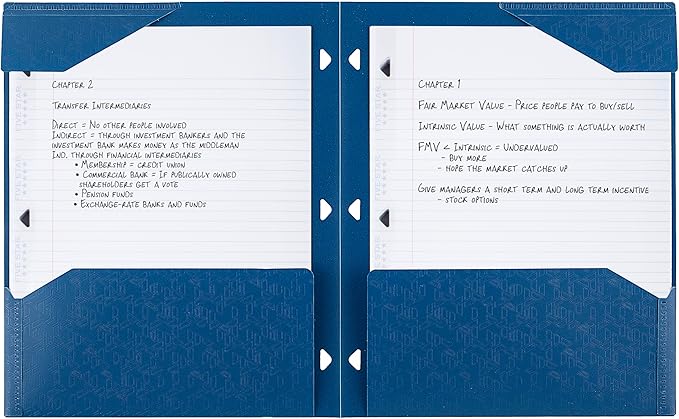 Chapter 2
Transfer Intermediaries
Direct = No other people involved
Indirect = through investment bankers and the
investment bank makes money as the middleman
Ind. through financial intermediaries
• Membership = credit union
• Commercial bank = If publically owned
shareholders get a vote
• Pension funds
• Exchange-rate banks and funds
Chapter 1
Fair Market Value - Price people pay to buy/sell
Intrinsic Value - What something is actually worth
FMV < Intrinsic = Undervalued
- buy more
- hope the market catches up
Give managers a short term and long term incentive
- stock options
FIVE STAR
FIVE STAR